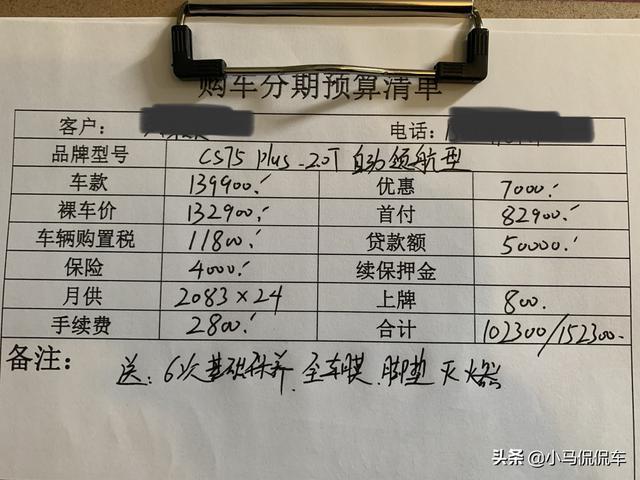 购车分期预算清单
客户： 电话：
品牌型号 CS75 plus-2.0T 自动领航型
车款 139900. 优惠 7000.
裸车价 132900. 首付 82900.
车辆购置税 11800. 贷款额 50000.
保险 4000. 续保押金
月供 2083×24 上牌 800.
手续费 2800. 合计 102300/152300.
备注： 送：6次基础保养、全车膜、脚垫、灭火器
头条 @小马侃侃车